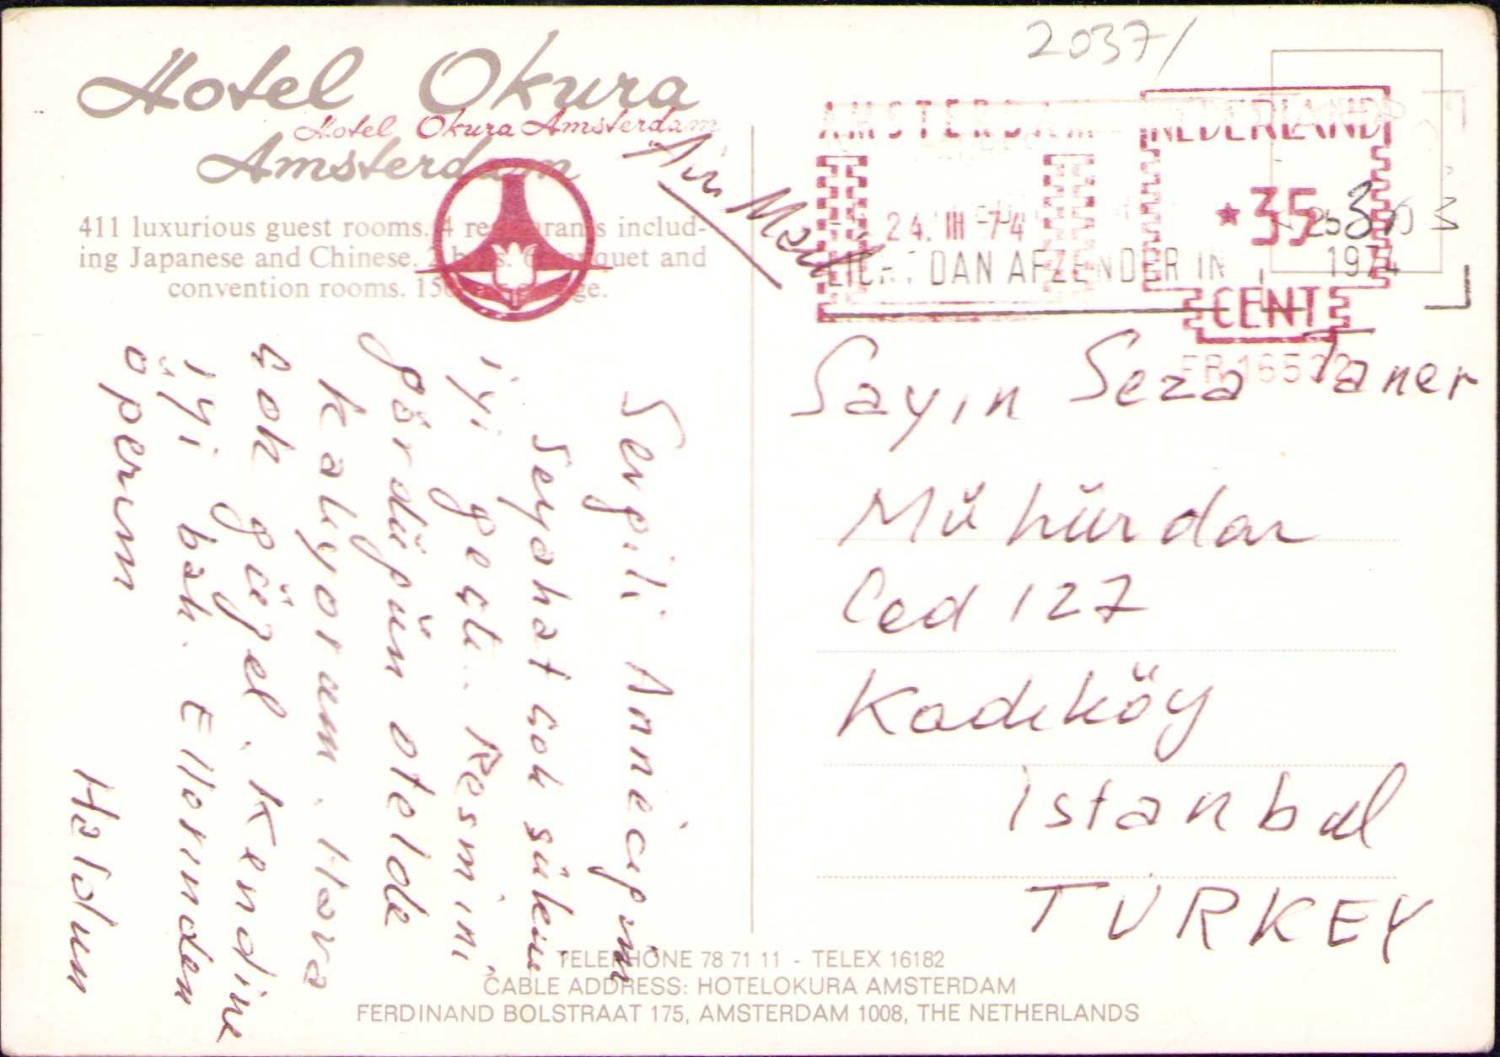 2037/
Hotel Okura
Hotel Okura Amsterdam
Amsterdam
411 luxurious guest rooms. 4 restaurants includ-
ing Japanese and Chinese. 2 bars. 6 banquet and
convention rooms. 150
Air Mail
AMSTERDAM
NEDERLAND
24. III -74
*35
1974
LICHT DAN AFZENDER IN
CENT
FR 16502
Sevgili Anneciğim
Seyahat çok sükun
iyi geçti. Resmini
gördüğün otelde
kalıyorum. Hava
çok güzel. Kendine
iyi bak. Ellerinden
öperim
Haldun
Sayın Seza Taner
Mühürdar
Cad 127
Kadıköy
istanbul
TURKEY
TELEPHONE 78 71 11 - TELEX 16182
CABLE ADDRESS: HOTELOKURA AMSTERDAM
FERDINAND BOLSTRAAT 175, AMSTERDAM 1008, THE NETHERLANDS